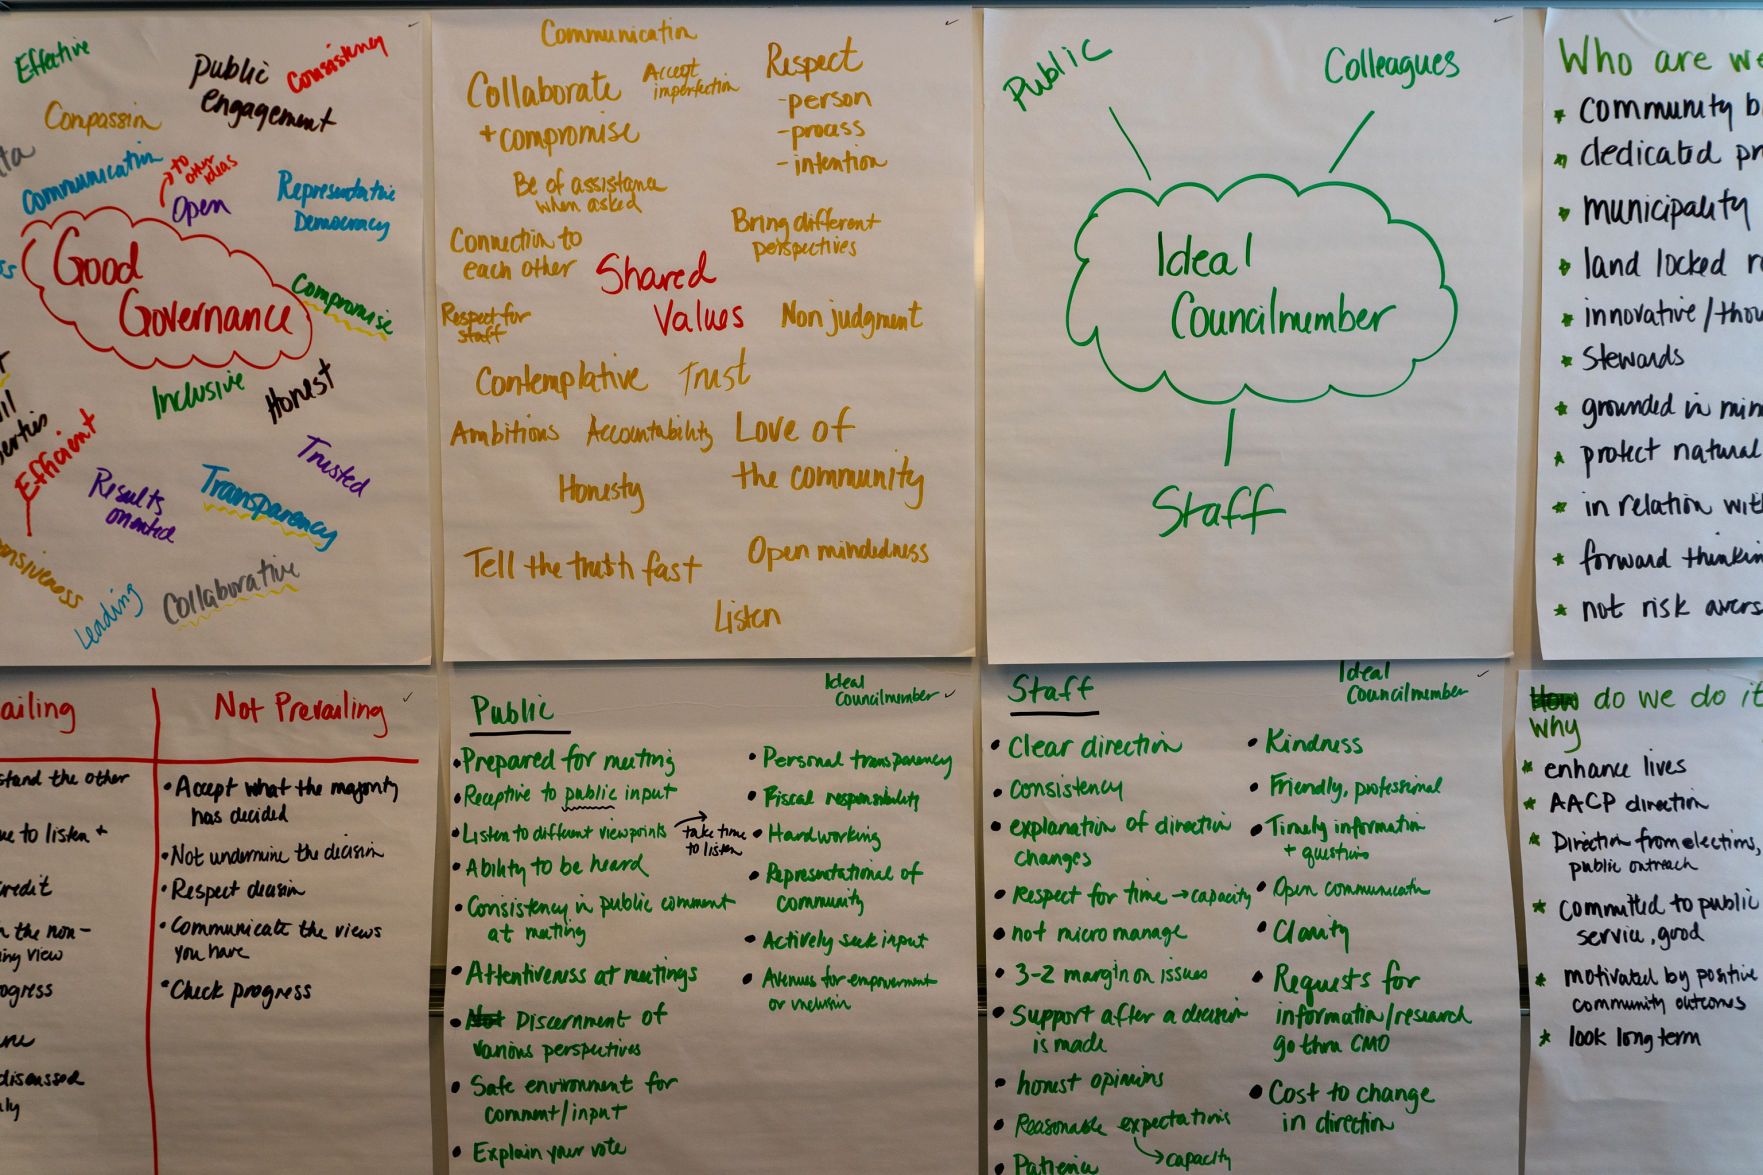 Effective
public
engagement
Consistency
Compassion
Communication
to
other
ideas
Open
Representative
Democracy
Good
Governance
Compromise
Inclusive
Honest
Efficient
Trusted
Results
oriented
Transparency
Leading
Collaborative
Communication
Collaborate
+ compromise
Accept
imperfection
Respect
- person
- process
- intention
Be of assistance
when asked
Bring different
perspectives
Connection to
each other
Shared
Values
Respect for
staff
Non judgment
Contemplative
Trust
Ambitions
Accountability
Love of
the community
Honesty
Tell the truth fast
Open mindedness
Listen
Public
Colleagues
Ideal
Councilmember
Staff
Who are we
community b
dedicated pr
municipality
land locked r
innovative/thou
Stewards
grounded in min
protect natural
in relation wit
forward thinkin
not risk avers
ailing
Not Prevailing
stand the other
ue to listen +
redit
n the non-
ing view
ogress
discussed
• Accept what the majority
has decided
• Not undermine the decision
• Respect decision
• Communicate the views
you have
• Check progress
Public
Ideal
Councilmember
• Prepared for meeting
• Receptive to public input
• Listen to different viewpoints
take time
to listen
• Ability to be heard
• Consistency in public comment
at meeting
• Attentiveness at meetings
• Discernment of
various perspectives
• Safe environment for
comment/input
• Explain your vote
• Personal transparency
• Fiscal responsibility
• Hardworking
• Representational of
community
• Actively seek input
• Avenues for empowerment
or inclusion
Staff
Ideal
Councilmember
• Clear direction
• Consistency
• explanation of direction
changes
• Respect for time → capacity
• not micro manage
• 3-2 margin on issues
• Support after a decision
is made
• honest opinions
• Reasonable expectations
→ capacity
• Patience
• Kindness
• Friendly, professional
• Timely information
+ questions
• Open communication
• Clarity
• Requests for
information/research
go thru CMO
• Cost to change
in direction
How do we do it
why
enhance lives
AACP direction
Direction from elections,
public outreach
committed to public
service, good
motivated by positive
community outcomes
look long term